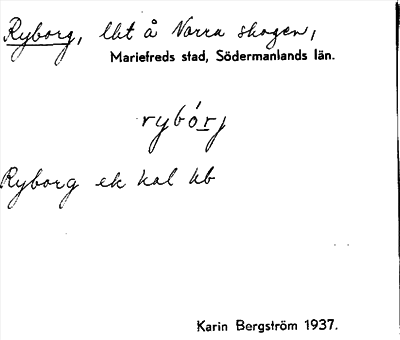 Ryborg, lht å Norra skogen,
Mariefreds stad, Södermanlands län.
rybórj
Ryborg ek kal kb
Karin Bergström 1937.